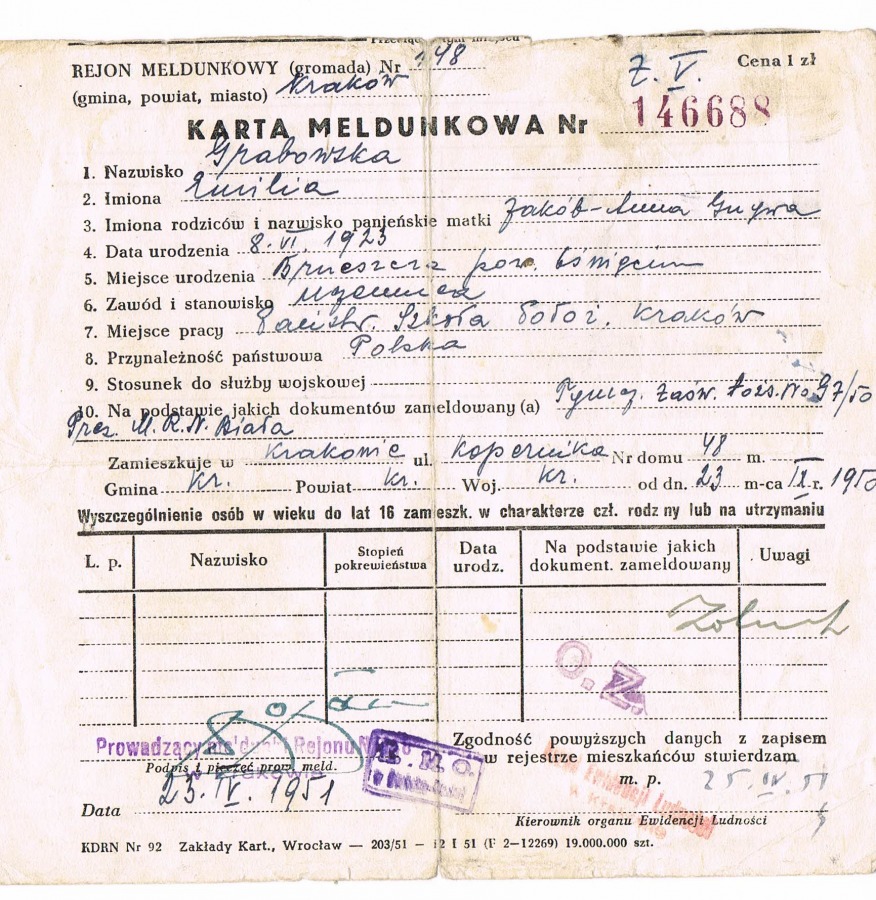 REJON MELDUNKOWY (gromada) Nr 148
(gmina, powiat, miasto) Kraków
Z. V.
Cena 1 zł
KARTA MELDUNKOWA Nr 146688
1. Nazwisko Grabowska
2. Imiona Emilia
3. Imiona rodziców i nazwisko panieńskie matki Jakób-Anna
4. Data urodzenia 8. VI. 1923
5. Miejsce urodzenia pow.
6. Zawód i stanowisko
7. Miejsce pracy Szkoła Położ. Kraków
8. Przynależność państwowa Polska
9. Stosunek do służby wojskowej
10. Na podstawie jakich dokumentów zameldowany (a) Tymcz. Zaśw. Tożs. No 97/50
Prez. M. R. N. Biała
Zamieszkuje w Krakowie ul. Kopernika Nr domu 48 m.
Gmina Kr. Powiat Kr. Woj. Kr. od dn. 23 m-ca IX r. 1950
Wyszczególnienie osób w wieku do lat 16 zamieszk. w charakterze czł. rodziny lub na utrzymaniu
L. p. Nazwisko Stopień pokrewieństwa Data urodz. Na podstawie jakich dokument. zameldowany Uwagi
O. Z.
Prowadzący Rejonu
Podpis i pieczęć prow. meld.
w Krakowie
Data 23. IV. 1951
Zgodność powyższych danych z zapisem
w rejestrze mieszkańców stwierdzam
m. p. 25. IV. 51
Ewidencji Ludności
Kierownik organu Ewidencji Ludności
KDRN Nr 92 Zakłady Kart., Wrocław — 203/51 — 12 I 51 (F 2—12269) 19.000.000 szt.